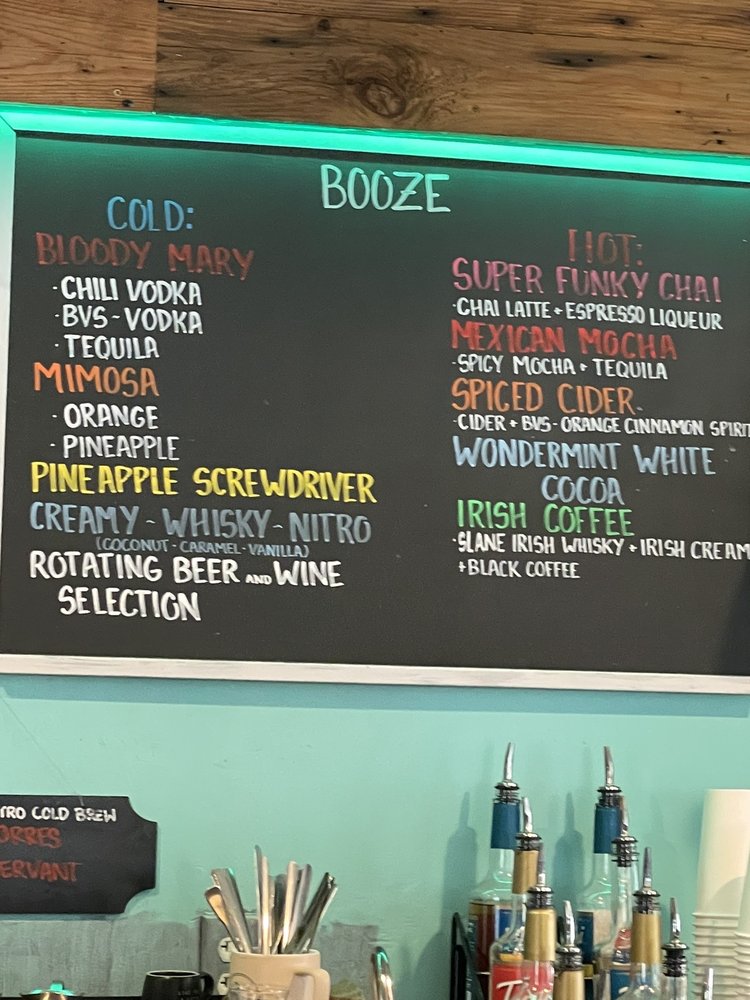 BOOZE
COLD:
BLOODY MARY
· CHILI VODKA
· BVS - VODKA
· TEQUILA
MIMOSA
· ORANGE
· PINEAPPLE
PINEAPPLE SCREWDRIVER
CREAMY - WHISKY - NITRO
(COCONUT - CARAMEL - VANILLA)
ROTATING BEER AND WINE
SELECTION
HOT:
SUPER FUNKY CHAI
· CHAI LATTE + ESPRESSO LIQUEUR
MEXICAN MOCHA
· SPICY MOCHA + TEQUILA
SPICED CIDER
· CIDER + BVS - ORANGE CINNAMON SPIRIT
WONDERMINT WHITE
COCOA
IRISH COFFEE
· SLANE IRISH WHISKY + IRISH CREAM
+ BLACK COFFEE
TRO COLD BREW
ORRES
ERVANT